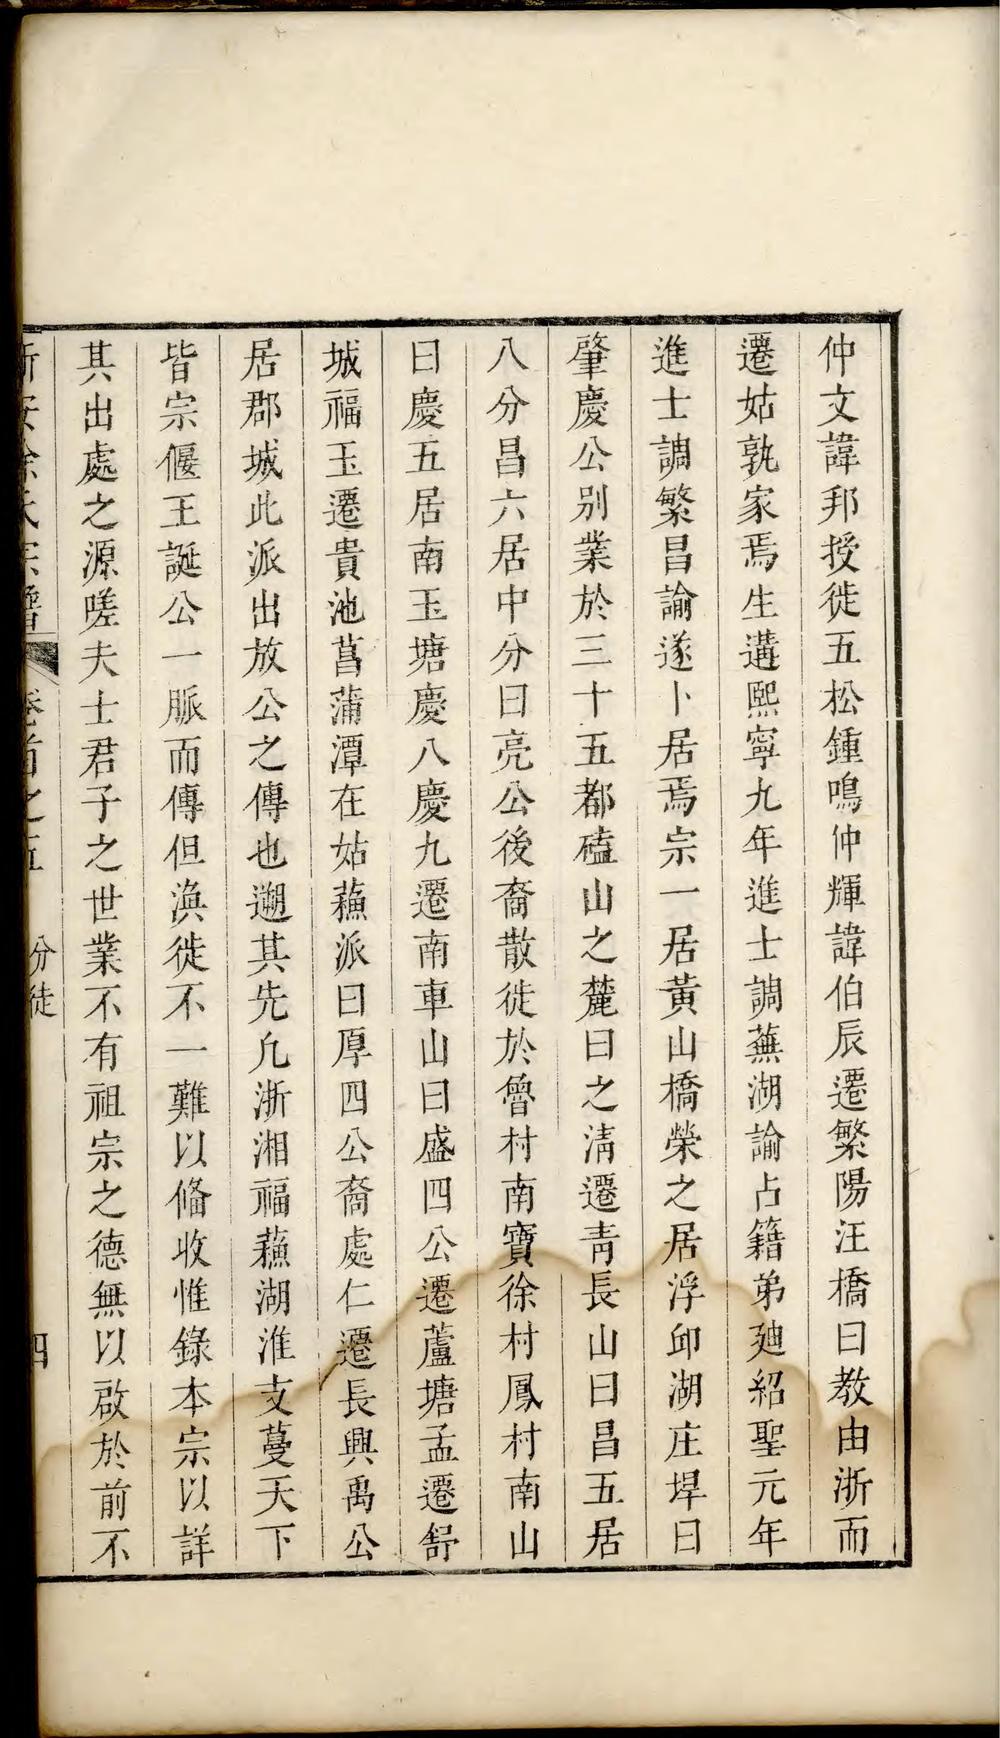 仲文諱邦授徙五松鍾鳴仲輝諱伯辰遷繁陽汪橋曰教由浙而
遷姑孰家焉生遘熙寧九年進士調蕪湖諭占籍弟廸紹聖元年
進士調繁昌諭遂卜居焉宗一居黃山橋榮之居浮邱湖庄垾曰
肇慶公別業於三十五都磕山之麓曰之淸遷靑長山曰昌五居
八分昌六居中分曰亮公後裔散徙於魯村南寶徐村鳳村南山
曰慶五居南玉塘慶八慶九遷南車山曰盛四公遷蘆塘孟遷舒
城福玉遷貴池菖蒲潭在姑蘓派曰厚四公裔處仁遷長興禹公
居郡城此派出放公之傳也遡其先凢浙湘福蘓湖淮支蔓天下
皆宗偃王誕公一脈而傳但渙徙不一難以俻收惟錄本宗以詳
其出處之源嗟夫士君子之世業不有祖宗之德無以啟於前不
新安徐氏宗譜 卷首之五 分徙 四